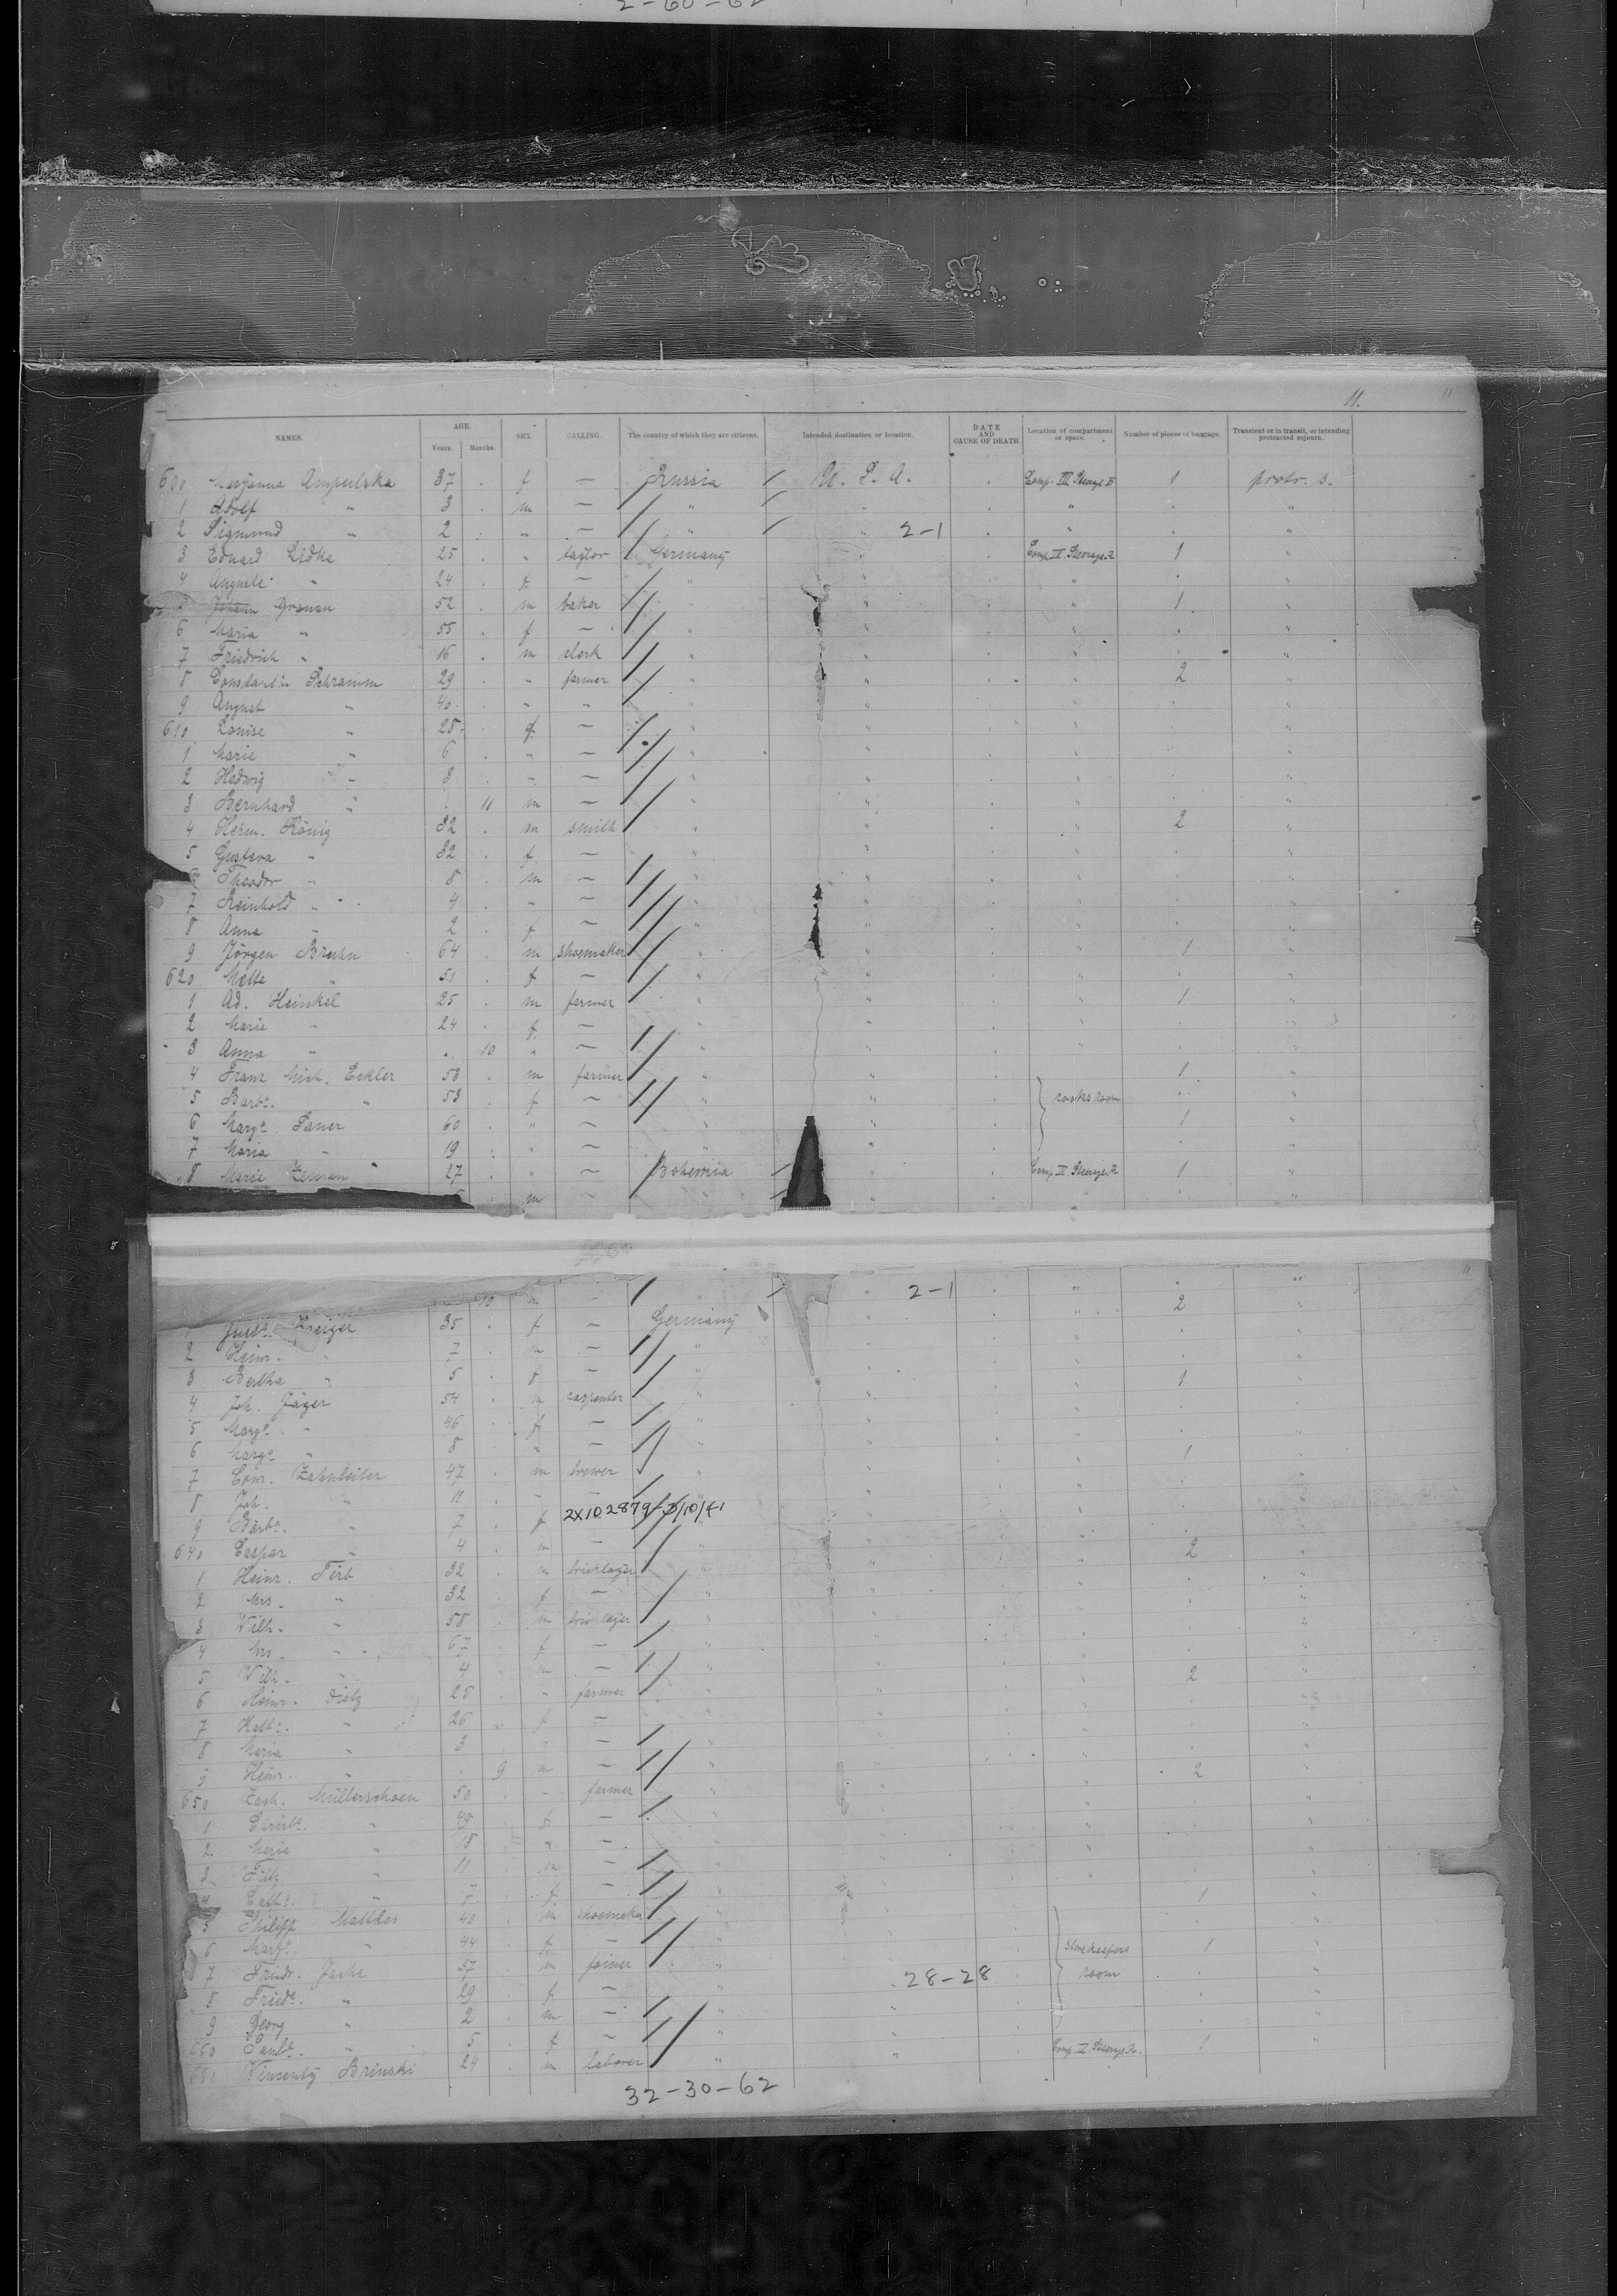 2-60-62
11. 11
NAMES. AGE. Years. Months. SEX. CALLING. The country of which they are citizens. Intended destination or location. DATE AND CAUSE OF DEATH. Location of compartment or space. Number of pieces of baggage. Transient or in transit, or intending protracted sojourn.
600 Maryanna Ampulska 37 . f — Russia U. S. A. . Comp. III Steerage 1 protr. s.
1 Adolf " 3 . m — " " . " . "
2 Sigmund " 2 . " — " " 2-1 . " . "
3 Eduard Lidka 25 . " taylor Germany " . Comp. IV. Steerage 1 "
4 Auguste " 24 . f — " " . " . "
Johann Granau 52 . m baker " " . " 1 "
6 Maria " 55 . f — " " . " . "
7 Friedrich " 16 . m clerk " " . " . "
8 Constantin Schramm 29 . " farmer " " . " 2 "
9 August " 40 . " - " " . " . "
610 Louise " 28 . f — " " . " . "
1 Marie " 6 . " — " " . " . "
2 Hedwig " 3 . " — " " . " . "
3 Bernhard " . 11 m — " " . " . "
4 Herm. König 32 . m smith " " . " 2 "
5 Gustava " 32 . f — " " . " . "
6 Theodor " 8 . m — " " . " . "
7 Reinhold " 4 . " — " " . " . "
8 Anna " 2 . f — " " . " . "
9 Jörgen Bruhn 64 . m shoemaker " " . " 1 "
620 Mette " 51 . f — " " . " . "
1 Ad. Heinkel 25 . m farmer " " . " 1 "
2 Marie " 24 . f — " " . " . "
3 Anna " . 10 " — " " . " . "
4 Franz Mich. Eckler 58 . m farmer " " . 1 "
5 Barb. " 53 . f — " " . cooks room . "
6 Marg. Sauer 60 . " — " " . 1 "
7 Maria " 19 . " — " " . . "
8 Marie Zeman 27 . " — Bohemia " . Comp. III Steerage 1 "
m — " " . " . "
10 m — " " 2-1 . " . "
Kreiger 35 . f — Germany " . " 2 "
2 Heinr. " 7 . m — " " . " . "
3 Bertha " 5 . f — " " . " . "
4 Joh. Jäger 54 . m carpenter " " . " 1 "
5 Marg. " 46 . f — " " . " . "
6 Marg. " 8 . " — " " . " . "
7 Conr. Zahnleiter 47 . m brewer " " . " 1 "
8 Joh. " 11 . - — " " . " . "
9 Barb. " 7 . f 2X102879 " " . " . "
640 Caspar " 4 . m — " " . " . "
1 Heinr. Ferb 32 . m bricklayer " " . " 2 "
2 Mrs. " 32 . f — " " . " . "
3 Wilh. " 58 . m bricklayer " " . " . "
4 Mrs. " . f — " " . " . "
5 Wilh. " 4 . m — " " . " . "
6 Heinr. Dietz 25 . " farmer " " . " 2 "
7 Kath. " 26 . f — " " . " . "
8 Maria " 3 . " — " " . " . "
9 Heinr. " . 9 m — " " . " . "
650 Zach. Müllerschoen 50 . - farmer " " . " 2 "
1 " 49 . f — " " . " . "
2 Marie " 18 . " — " " . " . "
3 " 11 . m — " " . " . "
4 Cath. " . f — " " . " . "
5 Philipp Matthes 40 . m shoemaker " " . 1 "
6 " 44 . f — " " . . "
7 Friedr. 37 . m joiner " " . storekeepers 1 "
8 Fried. " 29 . f — " " 28-28 . room . "
9 Georg " 2 . m — " " . . "
660 " 5 . f — " " . . "
661 Vincenty Brinski 24 . m laborer " " . Comp. V Steerage 1 "
32-30-62